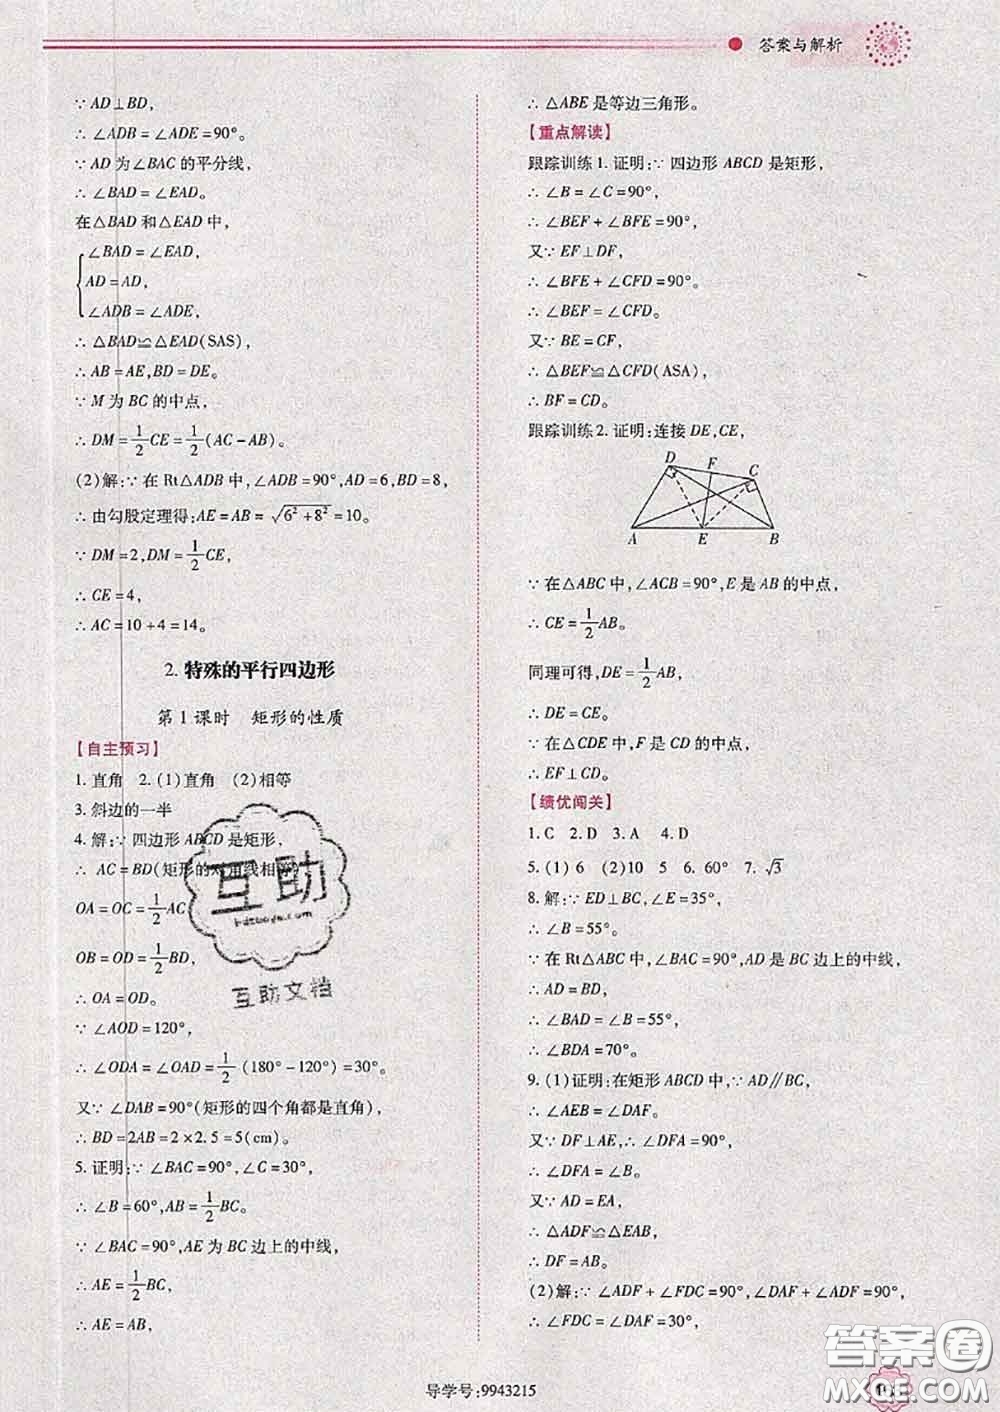 答案与解析
∵ AD⊥BD,
∴ ∠ADB = ∠ADE = 90°。
∵ AD 为∠BAC 的平分线,
∴ ∠BAD = ∠EAD。
在△BAD 和△EAD 中,
∠BAD = ∠EAD,
AD = AD,
∠ADB = ∠ADE,
∴ △BAD≌△EAD(SAS),
∴ AB = AE,BD = DE。
∵ M 为 BC 的中点,
∴ DM = 1/2 CE = 1/2 (AC - AB)。
(2)解:∵ 在 Rt△ADB 中,∠ADB = 90°,AD = 6,BD = 8,
∴ 由勾股定理得:AE = AB = √(6² + 8²) = 10。
∵ DM = 2,DM = 1/2 CE,
∴ CE = 4,
∴ AC = 10 + 4 = 14。
2. 特殊的平行四边形
第 1 课时 矩形的性质
【自主预习】
1. 直角 2. (1)直角 (2)相等
3. 斜边的一半
4. 解:∵ 四边形 ABCD 是矩形,
∴ AC = BD(矩形的对角线相等)
OA = OC = 1/2 AC
OB = OD = 1/2 BD,
∴ OA = OD。
∵ ∠AOD = 120°,
∴ ∠ODA = ∠OAD = 1/2 (180° - 120°) = 30°。
又∵ ∠DAB = 90°(矩形的四个角都是直角),
∴ BD = 2AB = 2 × 2.5 = 5(cm)。
5. 证明:∵ ∠BAC = 90°,∠C = 30°,
∴ ∠B = 60°,AB = 1/2 BC。
∵ ∠BAC = 90°,AE 为 BC 边上的中线,
∴ AE = 1/2 BC,
∴ AE = AB,
∴ △ABE 是等边三角形。
【重点解读】
跟踪训练 1. 证明:∵ 四边形 ABCD 是矩形,
∴ ∠B = ∠C = 90°,
∴ ∠BEF + ∠BFE = 90°。
又∵ EF⊥DF,
∴ ∠BFE + ∠CFD = 90°。
∴ ∠BEF = ∠CFD。
又∵ BE = CF,
∴ △BEF≌△CFD(ASA),
∴ BF = CD。
跟踪训练 2. 证明:连接 DE,CE,
D F C
A E B
∵ 在△ABC 中,∠ACB = 90°,E 是 AB 的中点,
∴ CE = 1/2 AB。
同理可得,DE = 1/2 AB,
∴ DE = CE。
∵ 在△CDE 中,F 是 CD 的中点,
∴ EF⊥CD。
【绩优闯关】
1. C 2. D 3. A 4. D
5. (1) 6 (2)10 5 6. 60° 7. √3
8. 解:∵ ED⊥BC,∠E = 35°,
∴ ∠B = 55°。
∵ 在 Rt△ABC 中,∠BAC = 90°,AD 是 BC 边上的中线,
∴ AD = BD,
∴ ∠BAD = ∠B = 55°,
∴ ∠BDA = 70°。
9. (1)证明:在矩形 ABCD 中,∵ AD∥BC,
∴ ∠AEB = ∠DAF。
又∵ DF⊥AE,∴ ∠DFA = 90°,
∴ ∠DFA = ∠B。
又∵ AD = EA,
∴ △ADF≌△EAB,
∴ DF = AB。
(2)解:∵ ∠ADF + ∠FDC = 90°,∠DAF + ∠ADF = 90°,
∴ ∠FDC = ∠DAF = 30°,
互助
互助文档
导学号:9943215
答案圈